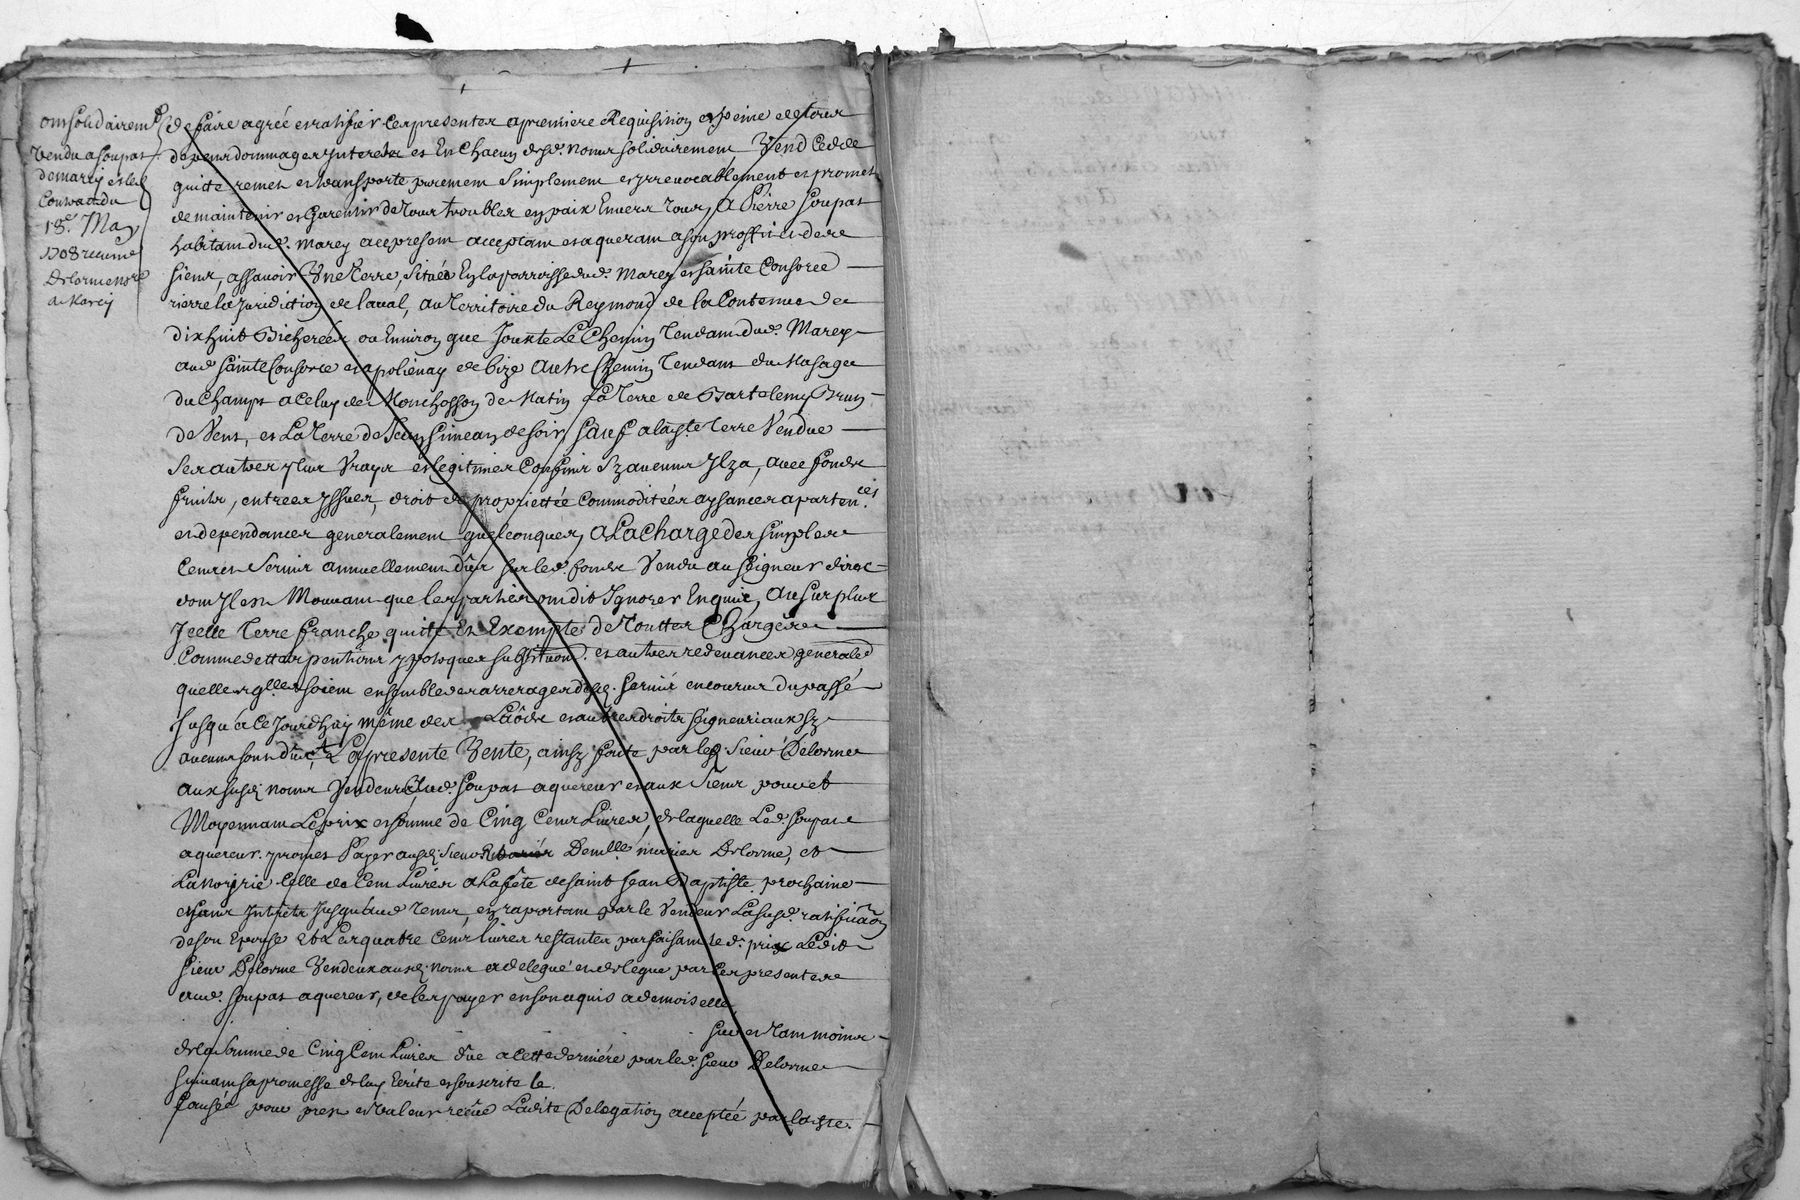 ont solidairemt
vendu a Soupat
de marcy et les
Contrat du
18e. May
1708 receu me
Delorme nore
a Marcy
de faire agréé et ratifier Ces presentes a premiere Requisition a peine de tous
depens dommages Interets et En Chacun desd. noms solidairement Vend Cedde
quitte remet et transporte purement simplement et Irrevocablement et promet
de maintenir et Garentir de tour troubles en paix Envers tous, A Pierre Soupat
habitant dud. Marcy acy present acceptant et aquerant a son proffit et de se
siens, assavoir Une Terre, Située En la parroisse dud. Marcy et sainte Consorce
rierre la Juridiction de laval, au Territoire du Reymond de la Contenue de
dix huit Bicherées ou Environ que Jouxte Le Chemin Tendant dud. Marcy
aud Sainte Consorce et a polienay de bize Autre Chemin Tendant du Masage
du Champt a Celuy de Monchosson de Matin La Terre de Bartelemy Brun
de Vent, et La Terre de Jean Simean de soir Sauf a lad. Terre Vendue
Ses autres plus Vrays et legitimes Confins Sy aucuns Il y a, avec fonds
fruits, entrees Issues, droit de propriettée commoditées aysances aparten.ces
et dependances generalement quelconques, A La Charge des simples
Cens et Servis annuellement dûs sur led. fonds Vendu au Seigneur direc
dont Il est Mouvant que les parties ont dit Ignorer Enquis, Au surplus
Jcelle Terre franche quitte Et Exempte de Touttes Charges
Comme dettes pentions ypoteques substituon. et autres redevances generale
quelles qlles soient ensemble des arrerages desd. servis encourus du passé
Jusqu'a Ce Jourdhuy même des Laods et autres droits seigneuriaux Sy
aucuns sont dûs, La presente Vente, ainsy faite par led. Sieur Delorme
aux susd. noms Vendeur Aud. Soupat aquereur et aux Siens pour et
Moyennant Le prix et somme de Cinq Cens Livres, de laquelle Led. Soupat
aquereur promet Payer ausd. Sieur Demlle. mariés Delorme, et
La norjrie Celle de Cent Livres a La fête de saint Jean Baptiste prochaine
et sans Intrets Jusqu'aud Tems, en raportant par le Vendeur La susd. ratification
de son Epouse Et Les quatre Cens livres restantes parfaisant led. prix Ledit
Sieur Delorme Vendeur ausd. noms a delegué et delegue par Ces presentes
aud. Soupat aquereur, de les payer en son aquis a demoiselle
Sur et Tant moins
de la somme de Cinq Cent Livres dûe a Cette derniére par led. Sieur Delorme
suivant sa promesse de luy Ecrite et souscrite le
Causée pour prest et Valeur reçûe Ladite Delegation acceptée par